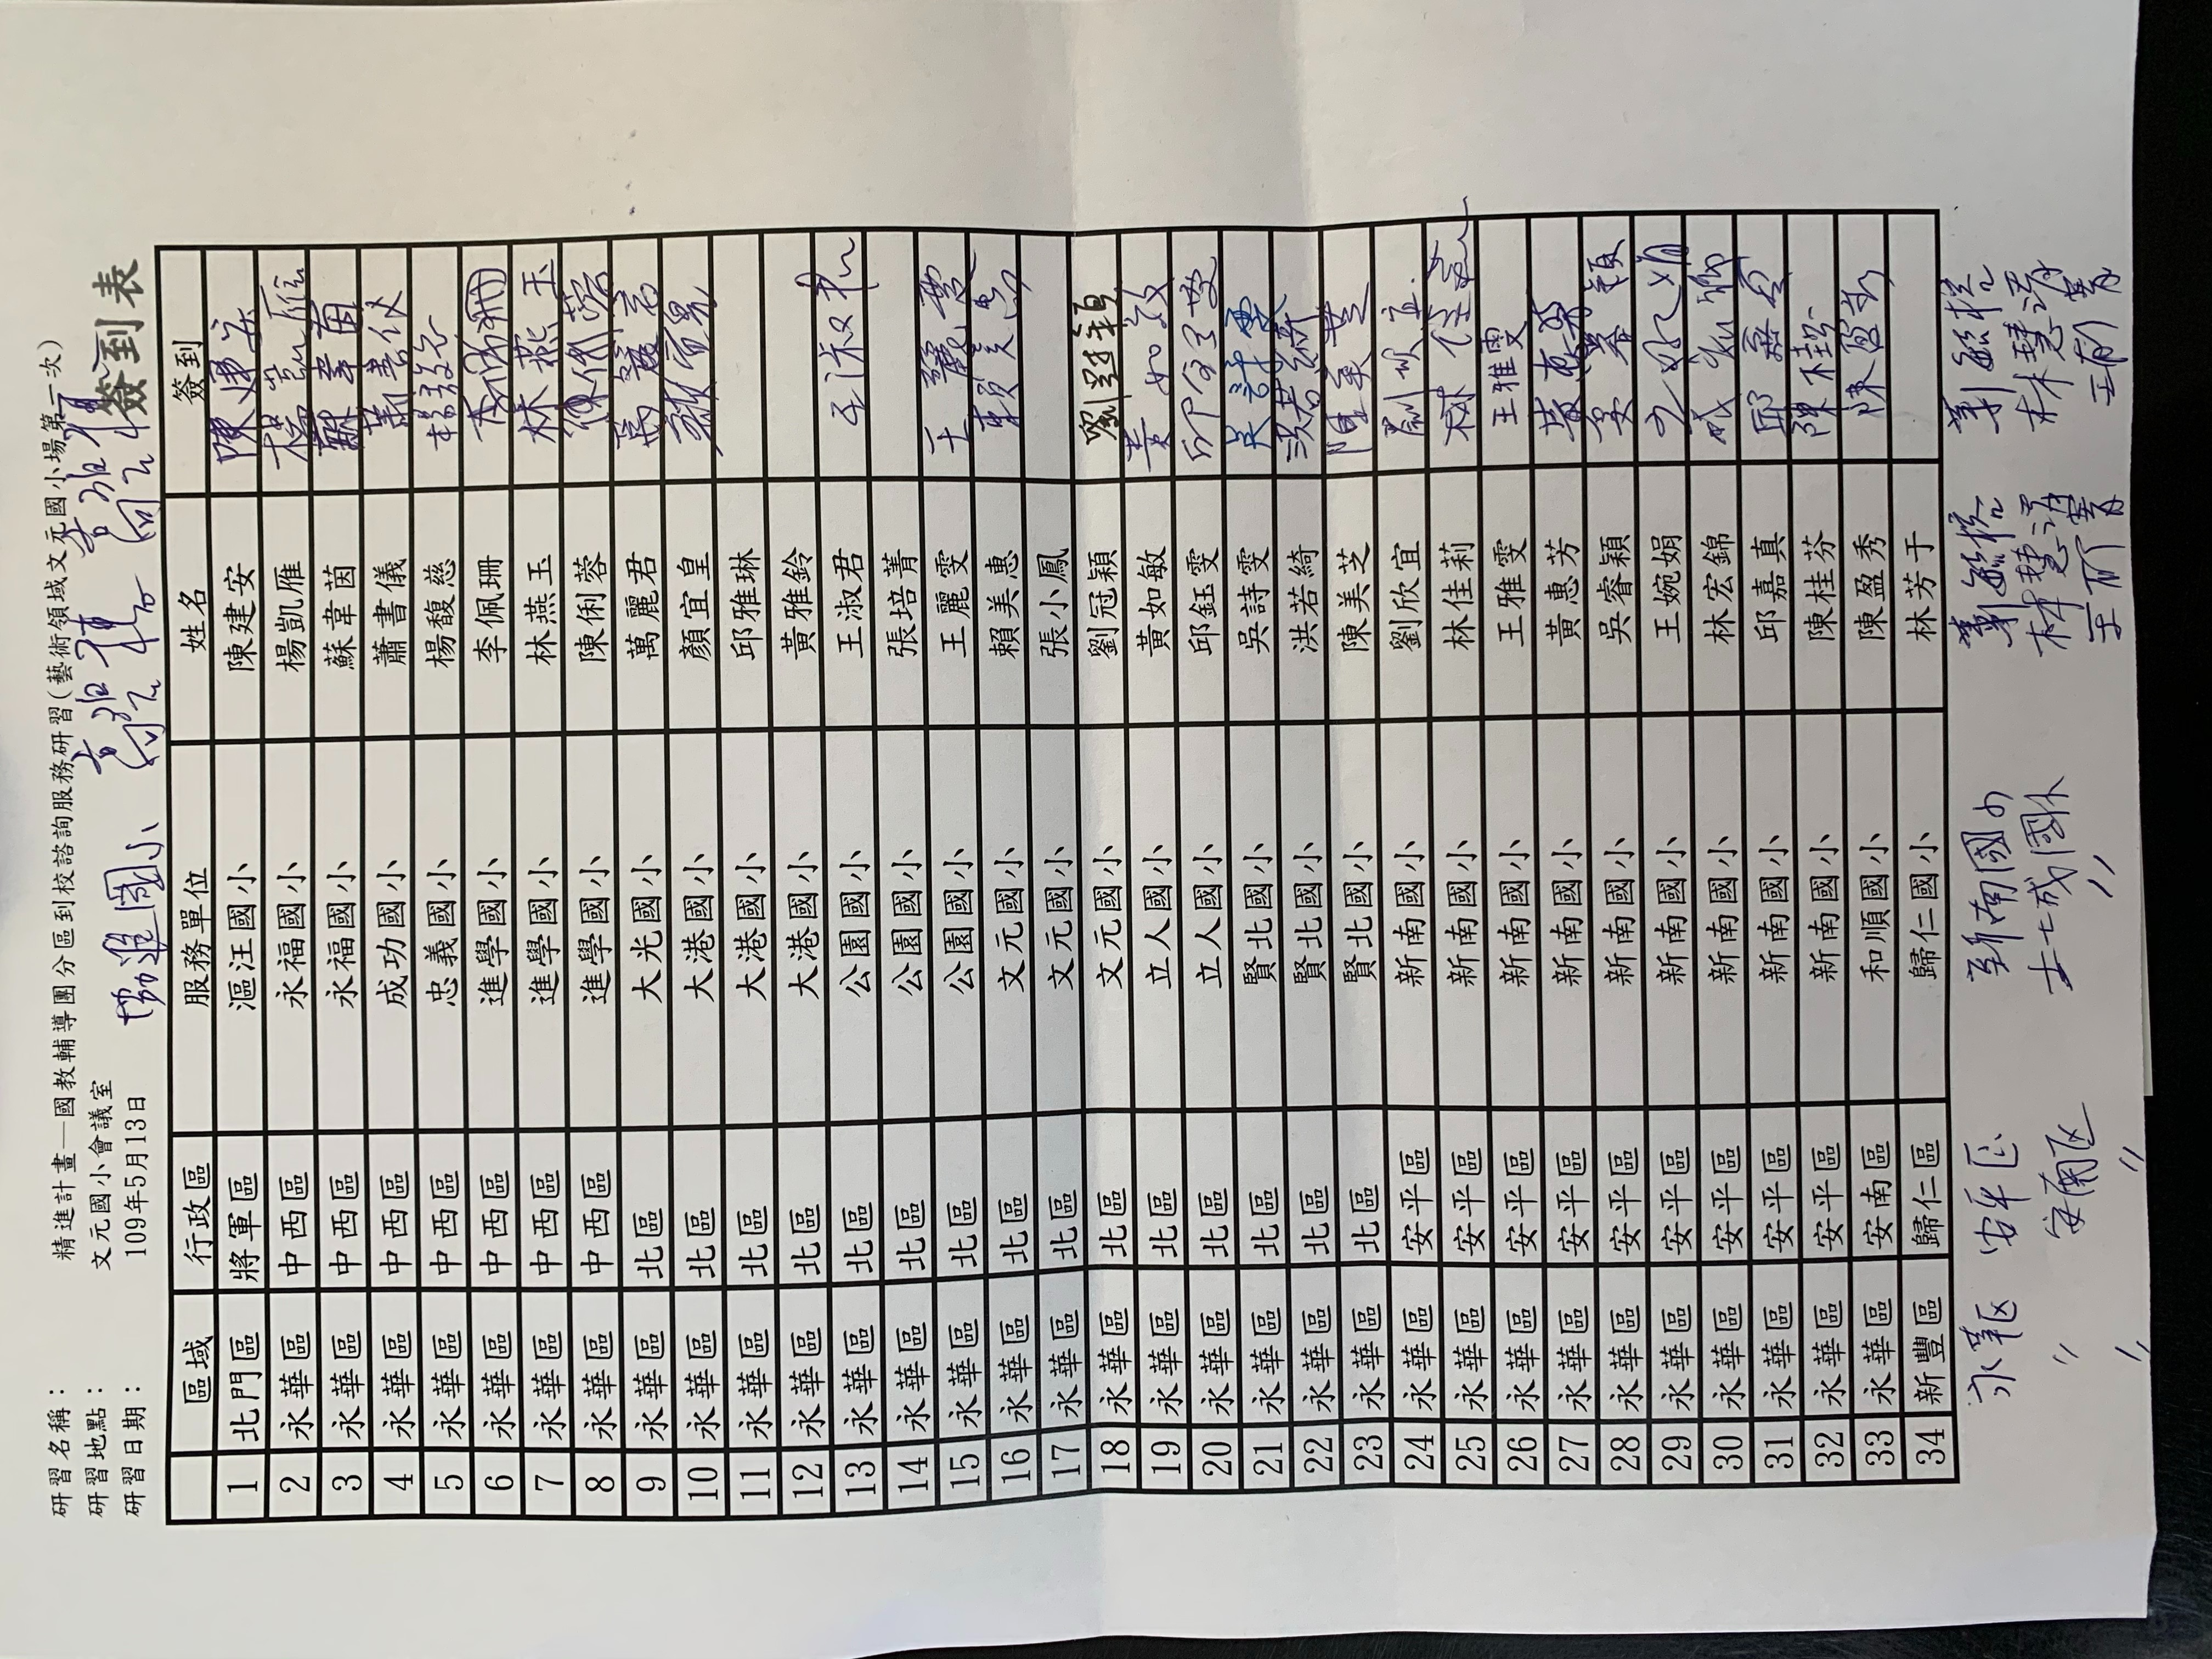 研習名稱： 精進計畫—國教輔導團分區到校諮詢服務研習(藝術領域文元國小場第一次)
研習地點： 文元國小會議室
研習日期： 109年5月13日
簽到表
勝進國小
區域 行政區 服務單位 姓名 簽到
1 北門區 將軍區 漚汪國小 陳建安 陳建安
2 永華區 中西區 永福國小 楊凱雁 楊凱雁
3 永華區 中西區 永福國小 蘇韋茵 蘇韋茵
4 永華區 中西區 成功國小 蕭書儀 蕭書仪
5 永華區 中西區 忠義國小 楊馥慈
6 永華區 中西區 進學國小 李佩珊 李佩珊
7 永華區 中西區 進學國小 林燕玉 林燕玉
8 永華區 中西區 進學國小 陳俐蓉 陳俐蓉
9 永華區 北區 大光國小 萬麗君 萬麗君
10 永華區 北區 大港國小 顏宜皇
11 永華區 北區 大港國小 邱雅琳
12 永華區 北區 大港國小 黃雅鈴
13 永華區 北區 公園國小 王淑君
14 永華區 北區 公園國小 張培菁
15 永華區 北區 公園國小 王麗雯 王麗雯
16 永華區 北區 文元國小 賴美惠 賴美惠
17 永華區 北區 文元國小 張小鳳
18 永華區 北區 文元國小 劉冠穎 劉冠穎
19 永華區 北區 立人國小 黃如敏 黃如敏
20 永華區 北區 立人國小 邱鈺雯 邱鈺雯
21 永華區 北區 賢北國小 吳詩雯 吳詩雯
22 永華區 北區 賢北國小 洪若綺 洪若綺
23 永華區 北區 賢北國小 陳美芝 陳美芝
24 永華區 安平區 新南國小 劉欣宜 劉欣宜
25 永華區 安平區 新南國小 林佳莉 林佳莉
26 永華區 安平區 新南國小 王雅雯 王雅雯
27 永華區 安平區 新南國小 黃惠芳 黃惠芳
28 永華區 安平區 新南國小 吳睿穎 吳睿穎
29 永華區 安平區 新南國小 王婉娟 王婉娟
30 永華區 安平區 新南國小 林宏錦
31 永華區 安平區 新南國小 邱嘉真 邱嘉真
32 永華區 安平區 新南國小 陳桂芬 陳桂芬
33 永華區 安南區 和順國小 陳盈秀 陳盈秀
34 新豐區 歸仁區 歸仁國小 林芳于
永華区 安平区 新南國小
〃 安南区 土城國小 林慧 林慧
〃 〃 〃